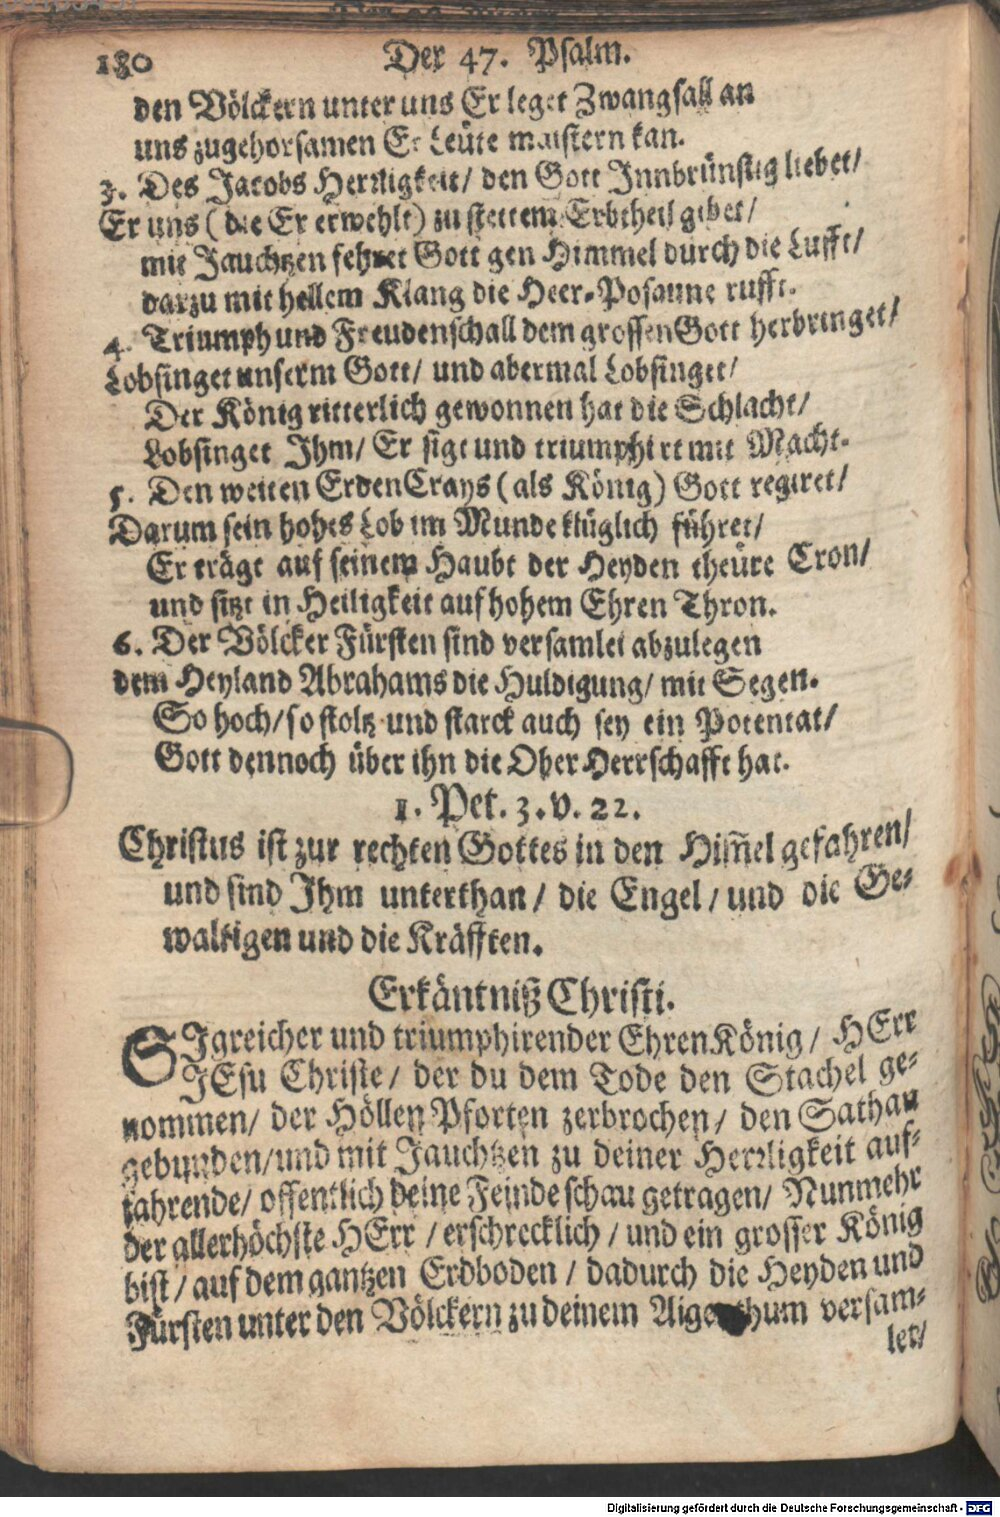 180
Der 47. Psalm.
den Völckern unter uns Er leget Zwangsall an
uns zugehorsamen Er Leüte maistern kan.
3. Des Jacobs Herrligkeit/ den Gott Innbrünstig liebet/
Er uns (die Er erwehlt) zu stettem Erbtheil gibet/
mit Jauchtzen fehret Gott gen Himmel durch die Lufft/
darzu mit hellem Klang die Heer-Posaune rufft.
4. Triumph und Freudenschall dem grossen Gott herbringet/
Lobsinget unserm Gott/ und abermal Lobsinget/
Der König ritterlich gewonnen hat die Schlacht/
Lobsinget Ihm/ Er sigt und triumphirt mit Macht.
5. Den weiten ErdenCrays (als König) Gott regiret/
Darum sein hohes Lob im Munde klüglich führet/
Er trägt auf seinem Haubt der Heyden theüre Cron/
und sitzt in Heiligkeit auf hohem Ehren Thron.
6. Der Völcker Fürsten sind versamlet abzulegen
dem Heyland Abrahams die Huldigung/ mit Segen.
So hoch/ so stoltz und starck auch sey ein Potentat/
Gott dennoch über ihn die Ober Herrschafft hat.
1. Pet. 3. v. 22.
Christus ist zur rechten Gottes in den Him̃el gefahren/
und sind Ihm unterthan/ die Engel/ und die Ge-
waltigen und die Kräfften.
Erkäntniß Christi.
SIgreicher und triumphirender EhrenKönig/ HErr
JEsu Christe/ der du dem Tode den Stachel ge-
nommen/ der Höllen Pforten zerbrochen/ den Sathan
gebunden/ und mit Jauchtzen zu deiner Herrligkeit auf-
fahrende/ offentlich deine Feinde schau getragen/ Nunmehr
der allerhöchste HErr/ erschrecklich/ und ein grosser König
bist/ auf dem gantzen Erdboden/ dadurch die Heyden und
Fürsten unter den Völckern zu deinem Aigenthum versam-
let/
Digitalisierung gefördert durch die Deutsche Forschungsgemeinschaft - DFG